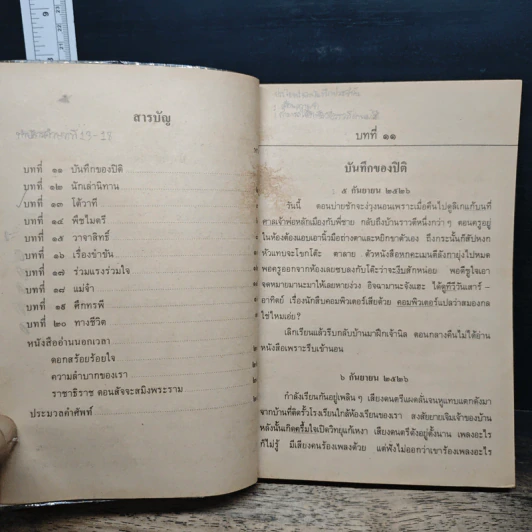 6
5
สารบัญ
บทที่ ๑๑ บันทึกของปิติ
บทที่ ๑๒ นักเล่านิทาน
บทที่ ๑๓ โต้วาที
บทที่ ๑๔ พืชไมตรี
บทที่ ๑๕ วาจาสิทธิ์
บทที่ ๑๖ เรื่องขำขัน
บทที่ ๑๗ ร่วมแรงร่วมใจ
บทที่ ๑๘ แม่จ๋า
บทที่ ๑๙ ศึกทรพี
บทที่ ๒๐ ทางชีวิต
หนังสืออ่านนอกเวลา
ดอกสร้อยร้อยใจ
ความลำบากของเรา
ราชาธิราช ตอนสัจจะสมิงพระราม
ประมวลคำศัพท์
บทที่ ๑๑
บันทึกของปิติ
๕ กันยายน ๒๕๒๖
วันนี้ ตอนบ่ายชักจะง่วงนอนเพราะเมื่อคืนไปดูลิเกแก้บนที่
ศาลเจ้าพ่อหลักเมืองกับพี่ชาย กลับถึงบ้านราวตีหนึ่งกว่าๆ ตอนครูอยู่
ในห้องต้องแอบเอานิ้วมือถ่างตาและหยิกขาตัวเอง ถึงกระนั้นก็สัปหงก
หัวแทบจะโขกโต๊ะ ตาลาย ตัวหนังสือหกคะเมนตีลังกายุ่งไปหมด
พอครูออกจากห้องเลยซบลงกับโต๊ะว่าจะงีบสักหน่อย พอดีชูใจเอา
จดหมายมานะมาให้เลยหายง่วง อิจฉามานะจังแฮะ ได้ดูทีวีวันเสาร์ -
อาทิตย์ เรื่องนักสืบคอมพิวเตอร์เสียด้วย คอมพิวเตอร์แปลว่าสมองกล
ใช่ไหมเอ่ย?
เลิกเรียนแล้วรีบกลับบ้านมาฝึกเจ้านิล ตอนกลางคืนไม่ได้อ่าน
หนังสือเพราะรีบเข้านอน
๖ กันยายน ๒๕๒๖
กำลังเรียนกันอยู่เพลินๆ เสียงดนตรีแผดลั่นจนหูแทบแตกดังมา
จากบ้านที่ติดรั้วโรงเรียนใกล้ห้องเรียนของเรา สงสัยยายเจิมเจ้าของบ้าน
หลังนั้นเกิดครึ้มใจเปิดวิทยุแก้เหงา เสียงดนตรีดังอยู่ตั้งนาน เพลงอะไร
ก็ไม่รู้ มีเสียงคนร้องเพลงด้วย แต่ฟังไม่ออกว่าเขาร้องเพลงอะไร